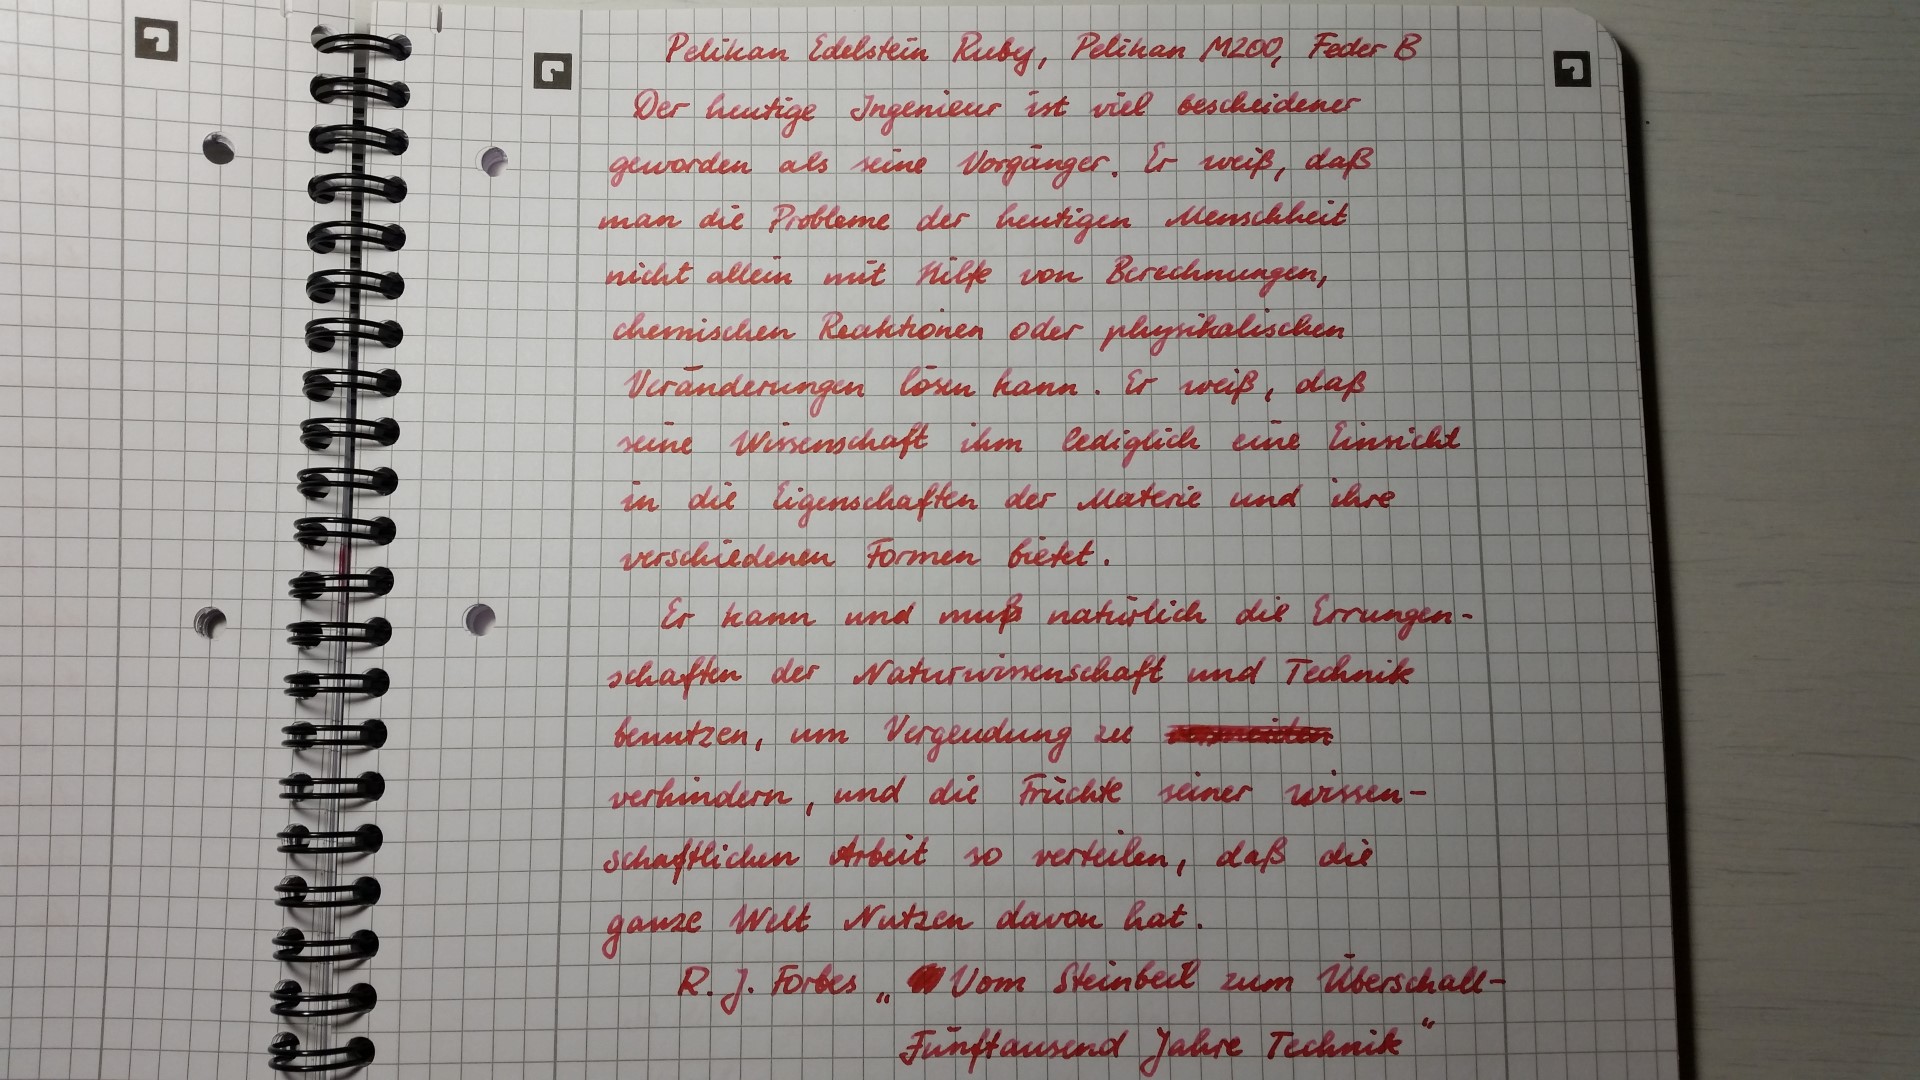 Pelikan Edelstein Ruby, Pelikan M200, Feder B
Der heutige Ingenieur ist viel bescheidener
geworden als seine Vorgänger. Er weiß, daß
man die Probleme der heutigen Menschheit
nicht allein mit Hilfe von Berechnungen,
chemischen Reaktionen oder physikalischen
Veränderungen lösen kann. Er weiß, daß
seine Wissenschaft ihm lediglich eine Einsicht
in die Eigenschaften der Materie und ihre
verschiedenen Formen bietet.
Er kann und muß natürlich die Errungen-
schaften der Naturwissenschaft und Technik
benutzen, um Vergeudung zu
verhindern, und die Früchte seiner wissen-
schaftlichen Arbeit so verteilen, daß die
ganze Welt Nutzen davon hat.
R. J. Forbes „Vom Steinbeil zum Überschall-
Fünftausend Jahre Technik“